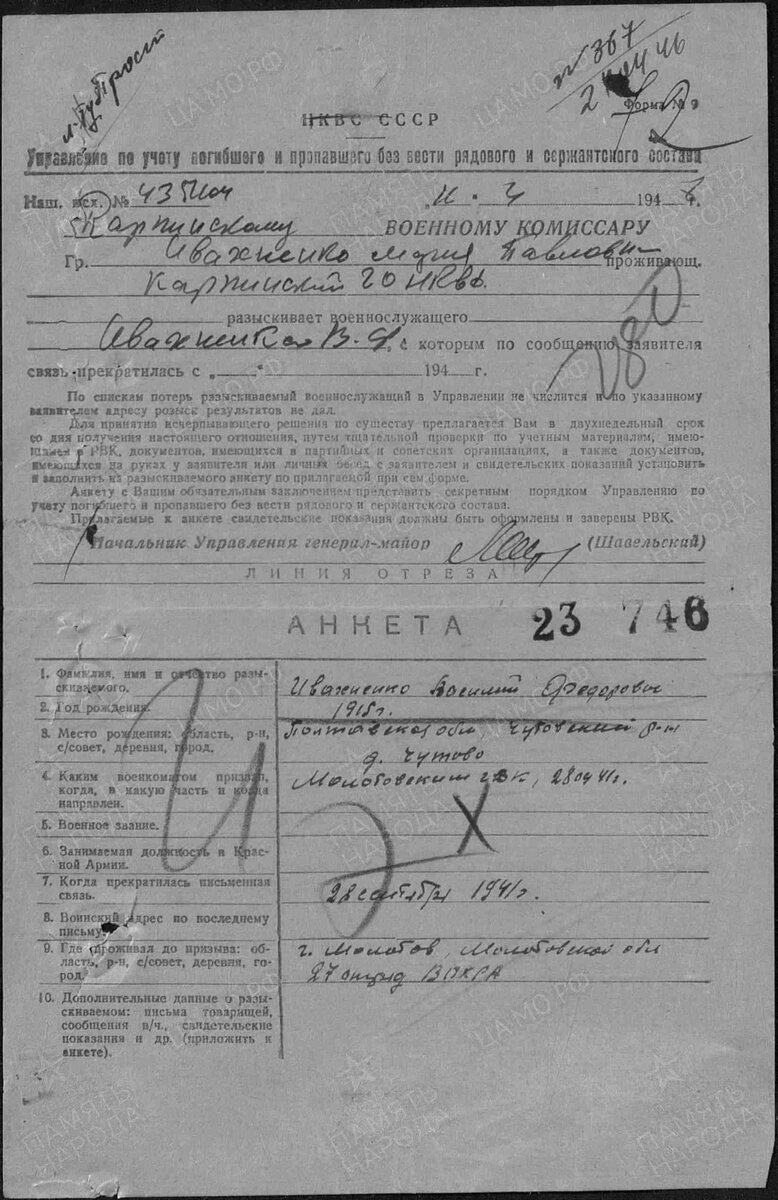 № 367
Форма № 9
НКВС СССР
Управление по учету погибшего и пропавшего без вести рядового и сержантского состава
Наш. исх. № 194 г.
Карпинскому ВОЕННОМУ КОМИССАРУ
Гр. Ивахненко Мария Павловн проживающ.
Карпинский ГО НКВД
разыскивает военнослужащего
Ивахненко В. Ф, с которым по сообщению заявителя
связь прекратилась с „ “ 194 г.
По спискам потерь разыскиваемый военнослужащий в Управлении не числится и по указанному
заявителем адресу розыск результатов не дал.
Для принятия исчерпывающего решения по существу предлагается Вам в двухнедельный срок
со дня получения настоящего отношения, путем тщательной проверки по учетным материалам, имею-
щимся в РВК, документов, имеющихся в партийных и советских организациях, а также документов,
имеющихся на руках у заявителя или личных бесед с заявителем и свидетельских показаний установить
и заполнить на разыскиваемого анкету по прилагаемой при сем форме.
Анкету с Вашим обязательным заключением представить секретным порядком Управлению по
учету погибшего и пропавшего без вести рядового и сержантского состава.
Прилагаемые к анкете свидетельские показания должны быть оформлены и заверены РВК.
Начальник Управления генерал-майор (Шавельский)
ЛИНИЯ ОТРЕЗА
АНКЕТА 23 746
1. Фамилия, имя и отчество разы-
скиваемого. Ивахненко Василий Федорович
2. Год рождения. 1915г.
3. Место рождения: область, р-н, Полтавская обл, Чутовский р-н
с/совет, деревня, город. д. Чутово
4. Каким военкоматом призван, Молотовским гвк, 28.04.41г.
когда, в какую часть и когда
направлен.
5. Военное звание.
6. Занимаемая должность в Крас-
ной Армии.
7. Когда прекратилась письменная
связь. 28 сентября 1941г.
8. Воинский адрес по последнему
письму.
9. Где проживал до призыва: об- г. Молотов, Молотовской обл
ласть, р-н, с/совет, деревня, го- 27 отряд ВОХРА
род.
10. Дополнительные данные о разы-
скиваемом: письма товарищей,
сообщения в/ч., свидетельские
показания и др. (приложить к
анкете).
ПАМЯТЬ НАРОДА
ЦАМО.РФ